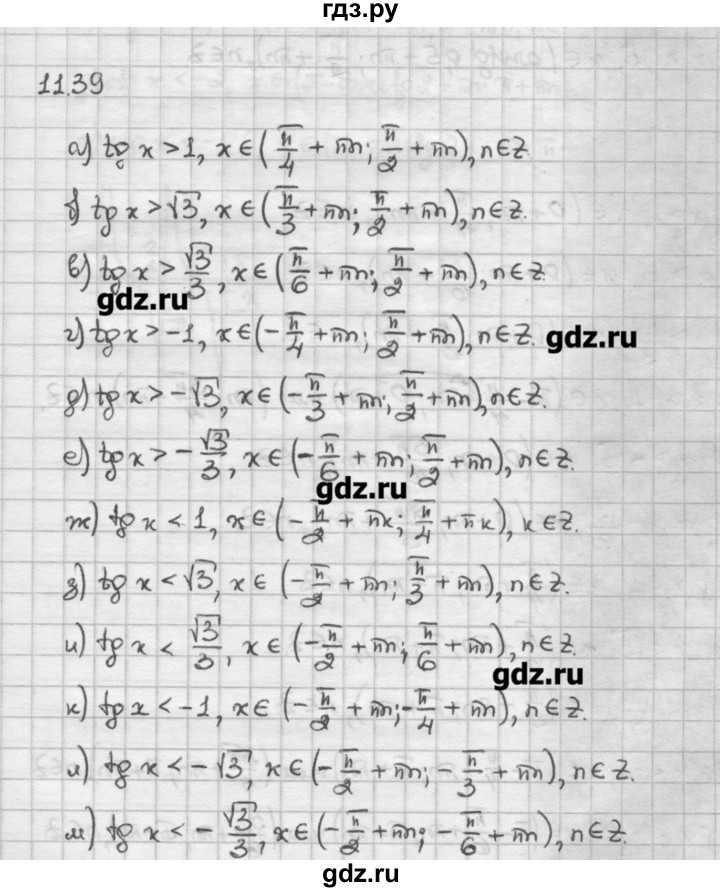 гдз.ру
11.39
а) tg x > 1, x ∈ (π/4 + πn; π/2 + πn), n ∈ Z.
б) tg x > √3, x ∈ (π/3 + πn; π/2 + πn), n ∈ Z.
в) tg x > √3/3, x ∈ (π/6 + πn; π/2 + πn), n ∈ Z.
gdz.ru
г) tg x > -1, x ∈ (-π/4 + πn; π/2 + πn), n ∈ Z.
gdz.ru
д) tg x > -√3, x ∈ (-π/3 + πn; π/2 + πn), n ∈ Z.
е) tg x > -√3/3, x ∈ (-π/6 + πn; π/2 + πn), n ∈ Z.
gdz.ru
ж) tg x < 1, x ∈ (-π/2 + πk; π/4 + πk), k ∈ Z.
з) tg x < √3, x ∈ (-π/2 + πn; π/3 + πn), n ∈ Z.
и) tg x < √3/3, x ∈ (-π/2 + πn; π/6 + πn), n ∈ Z.
gdz.ru
к) tg x < -1, x ∈ (-π/2 + πn; -π/4 + πn), n ∈ Z.
л) tg x < -√3, x ∈ (-π/2 + πn; -π/3 + πn), n ∈ Z.
м) tg x < -√3/3, x ∈ (-π/2 + πn; -π/6 + πn), n ∈ Z.
gdz.ru